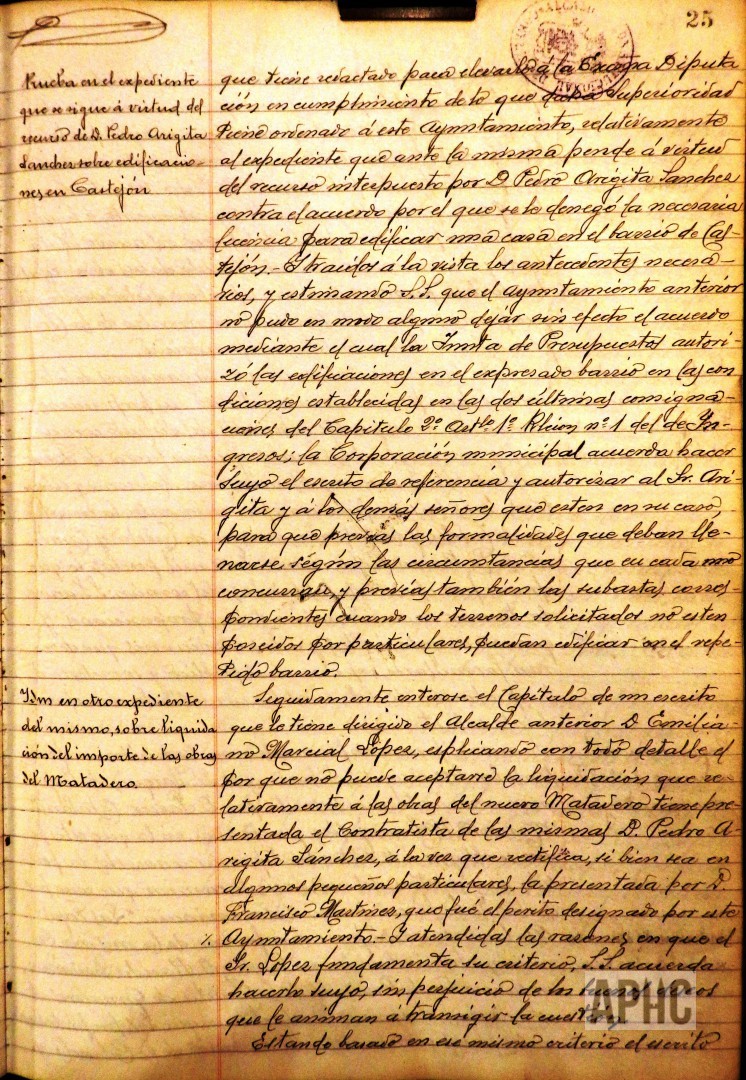 25
Prueba en el expediente
que se sigue á virtud del
recurso de D. Pedro Arigita
Sanchez sobre edificacio-
nes en Castejón
que tiene redactado para elevarlo á la Excma Diputa
ción en cumplimiento de lo que dicha Superioridad
tiene ordenado á este Ayuntamiento, relativamente
al expediente que ante la misma pende á virtud
del recurso interpuesto por D Pedro Arigita Sanchez
contra el acuerdo por el que se le denegó la necesaria
licencia para edificar una casa en el barrio de Cas-
tejón.- Y traidos á la vista los antecedentes necesa-
rios, y estimando S.S. que el Ayuntamiento anterior
no pudo en modo alguno dejar sin efecto el acuerdo
mediante el cual la Junta de Presupuestos autori-
zó las edificaciones en el expresado barrio en las con
diciones establecidas en las dos últimas consigna-
ciones del Capitulo 2º Artlo 1º Rlcion nº 1 del de In-
gresos; la Corporación municipal acuerda hacer
suyo el escrito de referencia y autorizar al Sr. Ari-
gita y á los demás señores que esten en su caso,
para que previas las formalidades que deban lle-
narse según las circunstancias que en cada uno
concurran, y previas también las subastas corres-
pondientes cuando los terrenos solicitados no esten
poseidos por particulares, puedan edificar en el repe-
tido barrio.
Idm en otro expediente
del mismo, sobre liquida
ción del importe de las obras
del Matadero.
Seguidamente enterose el Capitulo de un escrito
que le tiene dirigido el Alcalde anterior D Emilia-
no Marcial López, esplicando con todo detalle el
por que no puede aceptarse la liquidación que re-
lativamente á las obras del nuevo Matadero tiene pre-
sentada el Contratista de las mismas D. Pedro A-
rigita Sánchez, á la vez que rectifica, si bien sea en
algunos pequeños particulares, la presentada por D.
Francisco Martinez, que fué el perito designado por este
Ayuntamiento.- Y atendidas las razones en que el
Sr. López fundamenta su criterio, S.S. acuerda
hacerlo suyo, sin perjuicio de los buenos deseos
que le animan á transigir la cuestión
APHC
Estando basado en ese mismo criterio el escrito